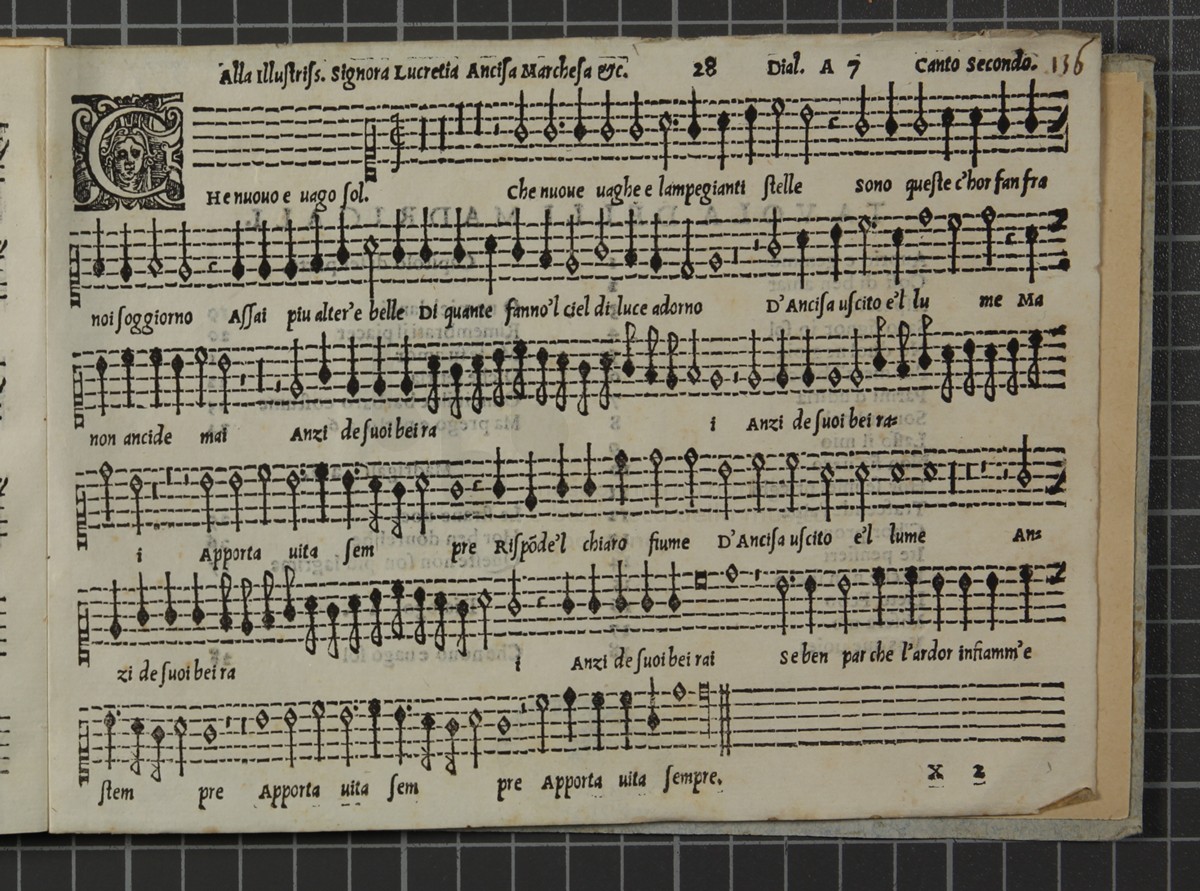 Alla Illustriſs. Signora Lucretia Anciſa Marcheſa &c. 28 Dial. A 7 Canto Secondo. 136
CHe nuouo e uago ſol. Che nuoue uaghe e lampegianti ſtelle Sono queſte c'hor fan fra
noi ſoggiorno Aſſai piu alter'e belle Di quante fanno'l ciel di luce adorno D'Anciſa uſcito e'l lu me Ma
non ancide mai Anzi de ſuoi bei ra i Anzi de ſuoi bei ra=
i Apporta uita ſem pre Riſpõde'l chiaro fiume D'Anciſa uſcito e'l lume An=
zi de ſuoi bei ra i Anzi de ſuoi bei rai Se ben par che l'ardor infiamm'e
ſtem pre Apporta uita ſem pre Apporta uita ſempre.
X 2